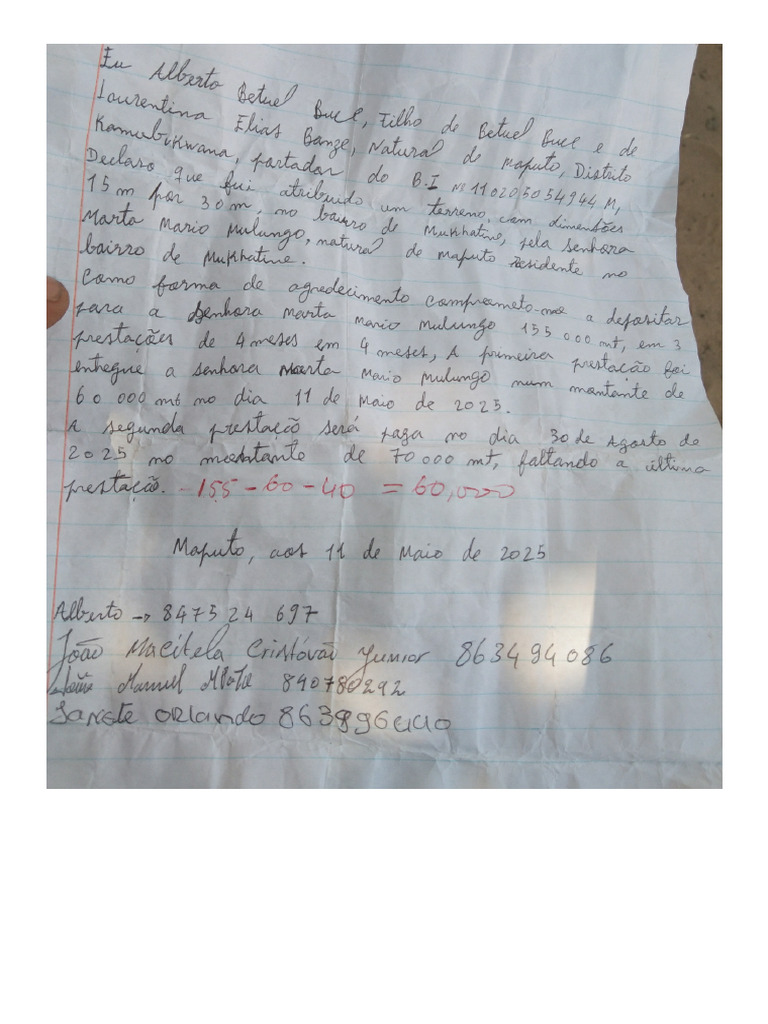 Eu Alberto Betuel Buce, Filho de Betuel Buce e de
Laurentina Elias Banze, Natural de Maputo, Distrito
Kamubukwana, portador do B.I Nº 110205054944 M,
Declaro que fui atribuido um terreno, com dimensões
15m por 30m, no bairro de Mukhatine, pela senhora
Marta Mario Mulungo, natural de Maputo Residente no
bairro de Mukhatine.
Como forma de agredecimento comprometo-me a depositar
para a Senhora Marta Mario Mulungo 155 000 mt, em 3
prestações de 4 meses em 4 meses, A primeira prestação foi
entregue a senhora Marta Mario Mulungo num montante de
60 000 mt no dia 11 de Maio de 2025.
A segunda prestação será paga no dia 30 de Agosto de
2025 no montante de 70 000 mt, faltando a última
prestação. -155 - 60 - 40 = 60,000
Maputo, aos 11 de Maio de 2025
Alberto → 847524 697
João Macitela Cristóvão Junior 863494086
Manuel 840780292
Orlando